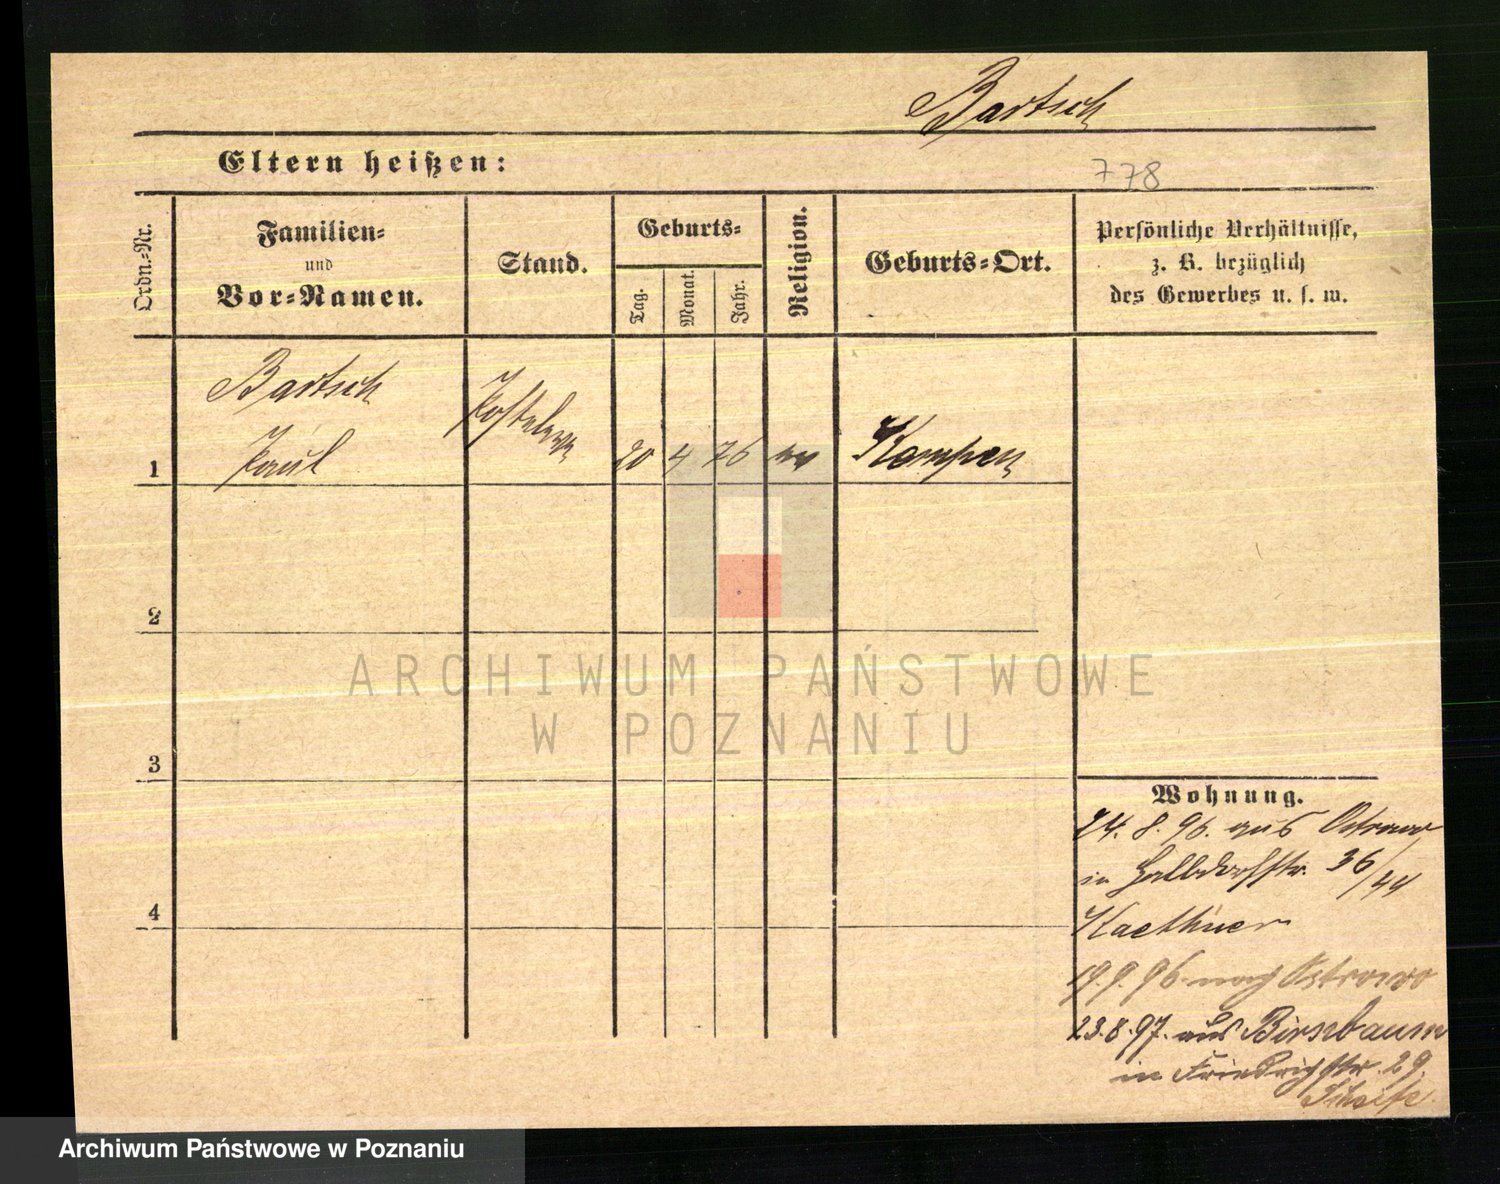 Bartsch
Eltern heißen:
778
Ordn.-Nr.
Familien-
und
Vor-Namen.
Stand.
Geburts-
Tag.
Monat.
Jahr.
Religion.
Geburts-Ort.
Persönliche Verhältnisse,
z. B. bezüglich
des Gewerbes u. s. w.
Bartsch
Paul
1
20 4 76
Kempen
2
3
4
Wohnung.
24. 8. 96. aus Ostrowo
in Halbdorfstr. 36/44
Kaethner
19. 9. 96 nach Ostrowo
23. 8. 97. aus Birnbaum
in Friedrichstr. 29.
ARCHIWUM PAŃSTWOWE
W POZNANIU
Archiwum Państwowe w Poznaniu